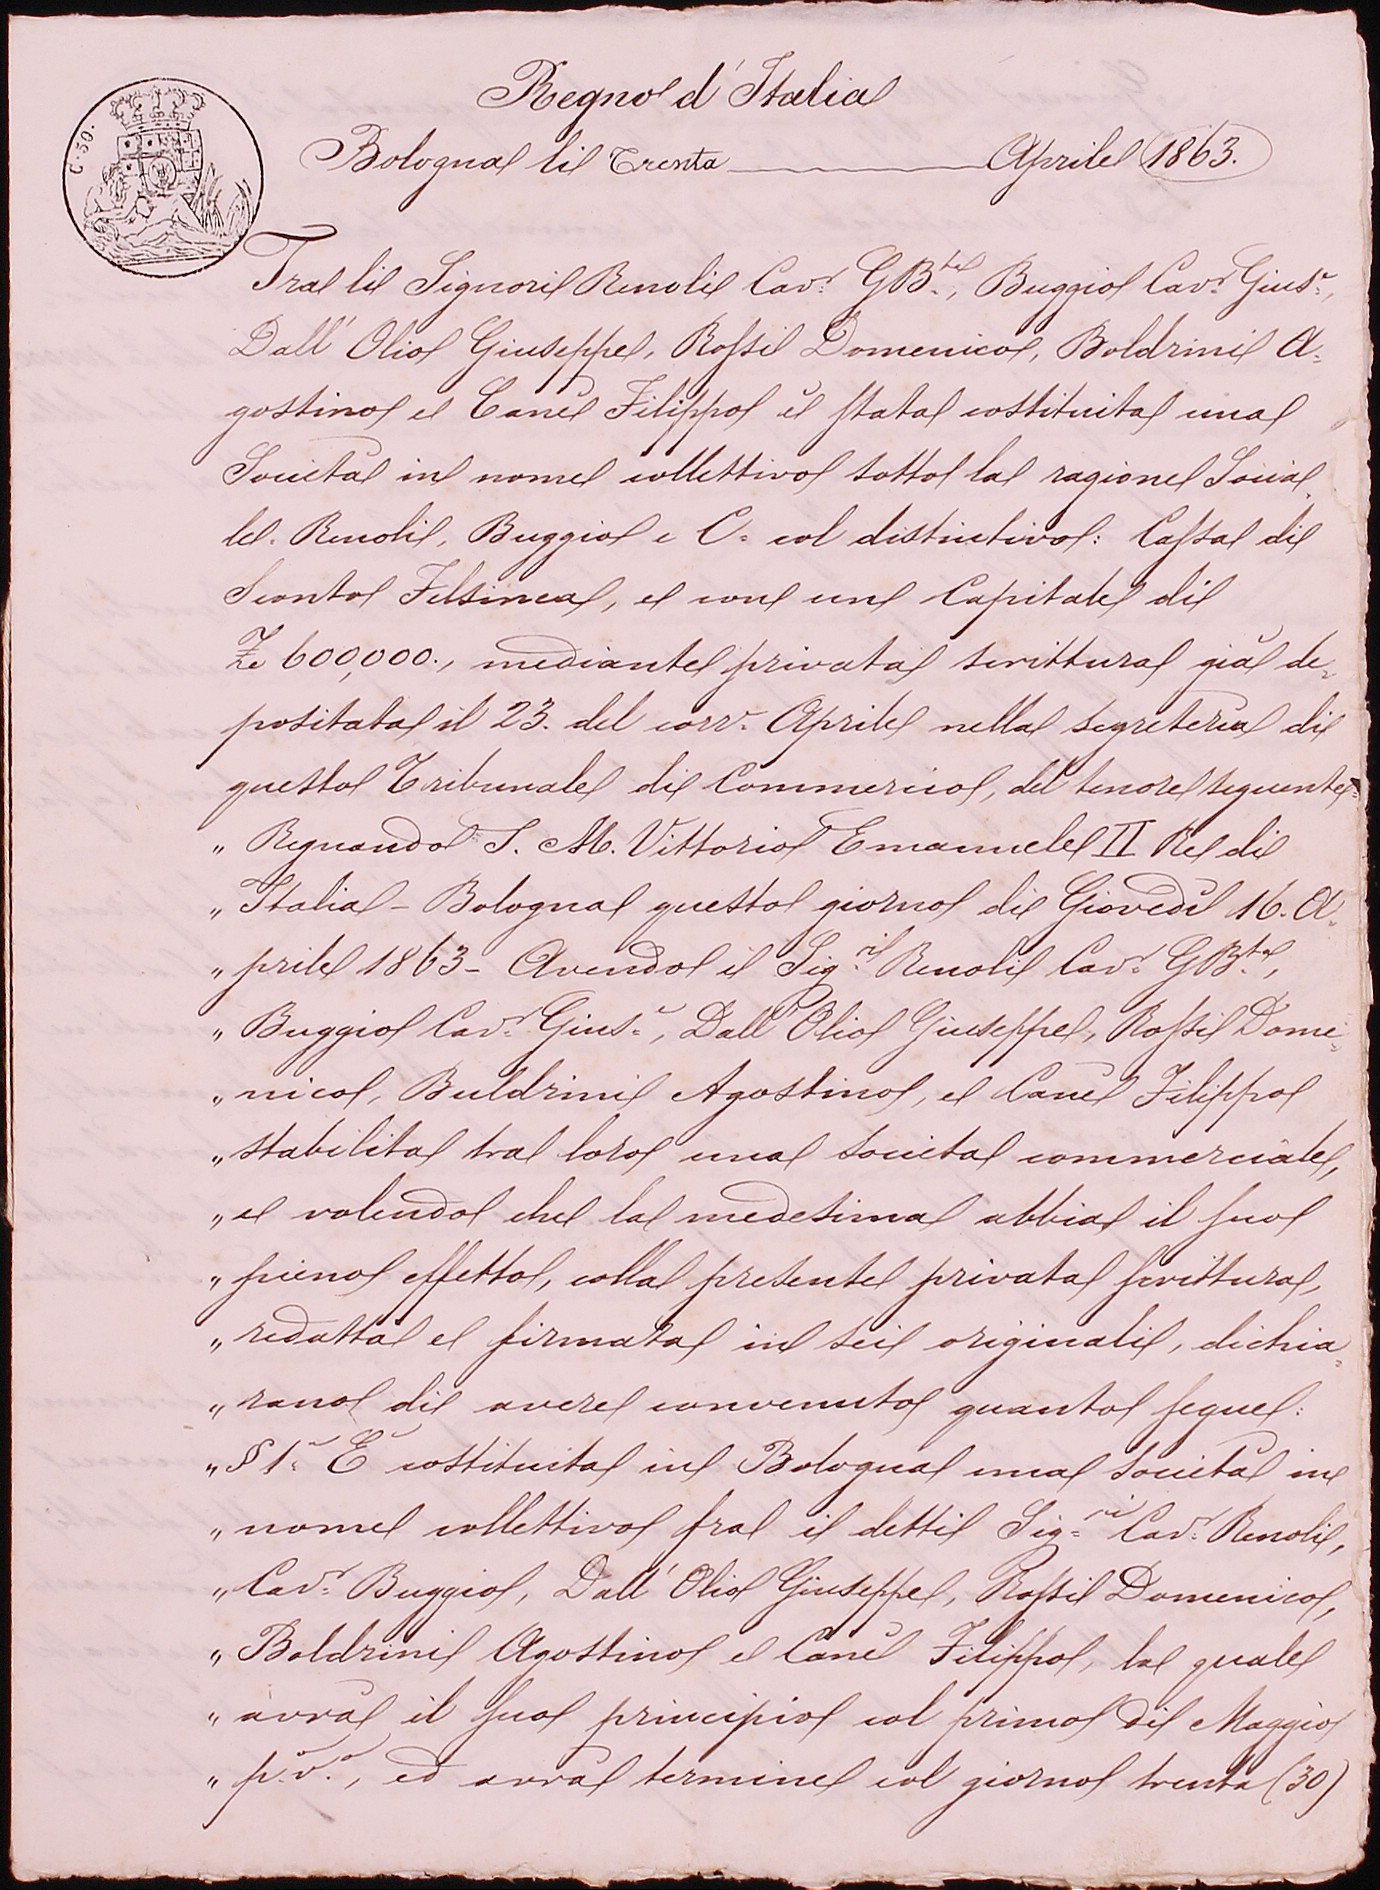 Regno d'Italia
C. 50.
Bologna li Trenta Aprile 1863.
Tra li Signori Renoli Cavr. GBta., Buggio Cavr. Giuse.,
Dall' Olio Giuseppe, Rossi Domenico, Boldrini A-
gostino e Canè Filippo è stata costituita una
Società in nome collettivo sotto la ragione Socia-
le. Renoli, Buggio e C. col distintivo: Cassa di
Sconto Felsinea, e con un Capitale di
£ 600,000., mediante privata scrittura già de-
positata il 23. del corre. Aprile nella segreteria di
questo Tribunale di Commercio, del tenore seguente=
„ Regnando S. M. Vittorio Emanuele II Re di
„ Italia - Bologna questo giorno di Giovedì 16. A-
„ prile 1863 - Avendo i Sig.ri Renoli Cavr. GBta.,
„ Buggio Cavr. Giuse., Dall' Olio Giuseppe, Rossi Dome-
„ nico, Buldrini Agostino, e Canè Filippo
„ stabilita tra loro una società commerciale,
„ e volendo che la medesima abbia il suo
„ pieno effetto, colla presente privata scrittura,
„ redatta e firmata in sei originali, dichia-
„ rano di avere convenuto quanto segue:
„ § 1.° È costituita in Bologna una società in
„ nome collettivo fra i detti Sig.ri Cavr. Renoli,
„ Cavr. Buggio, Dall' Olio Giuseppe, Rossi Domenico,
„ Boldrini Agostino e Canè Filippo, la quale
„ avrà il suo principio col primo di Maggio
„ p.° v.°, ed avrà termine col giorno trenta (30)